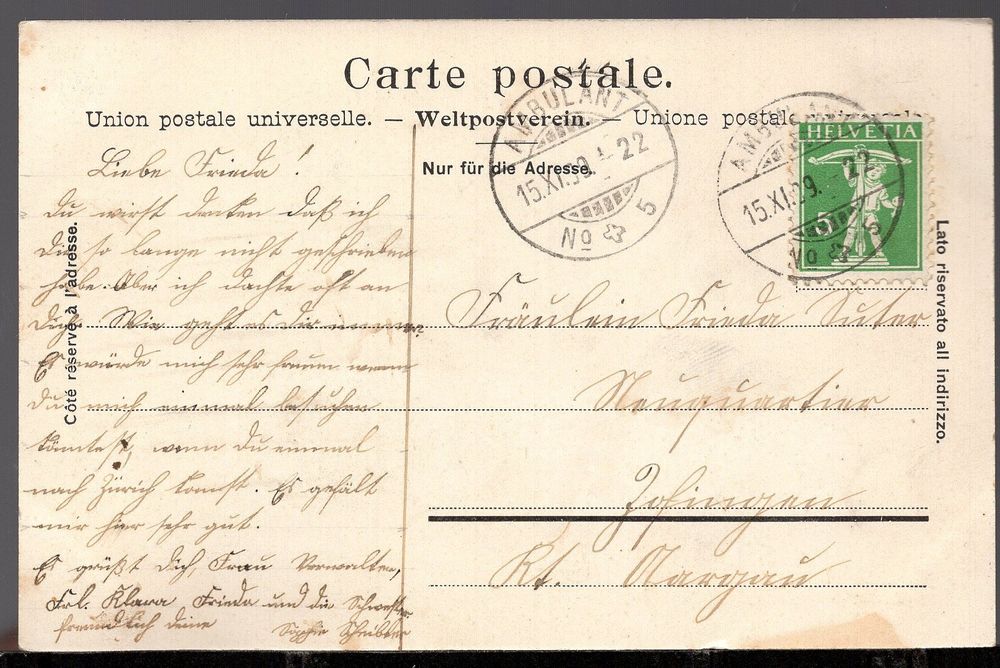 Carte postale.
Union postale universelle. — Weltpostverein. — Unione postale
Nur für die Adresse.
Côté réservé à l'adresse.
Lato riservato all indirizzo.
AMBULANT
15.XI.09. 22
No 5
AMBULANT
15.XI.09. 22
No 5
HELVETIA
5
Liebe Frieda!
Du wirst denken daß ich
Dir so lange nicht geschrieben
habe. Aber ich dachte oft an
Dich. Wie geht es Dir immer?
Es würde mich sehr freuen wenn
Du mich einmal besuchen
könntest, wenn Du einmal
nach Zürich komst. Es gefält
mir hier sehr gut.
Es grüßt Dich, Frau Verwalter,
Frl. Klara Frieda und die Schwester
freundlich deine
Fräulein Frieda Suter
Neuquartier
Zofingen
Kt. Aargau